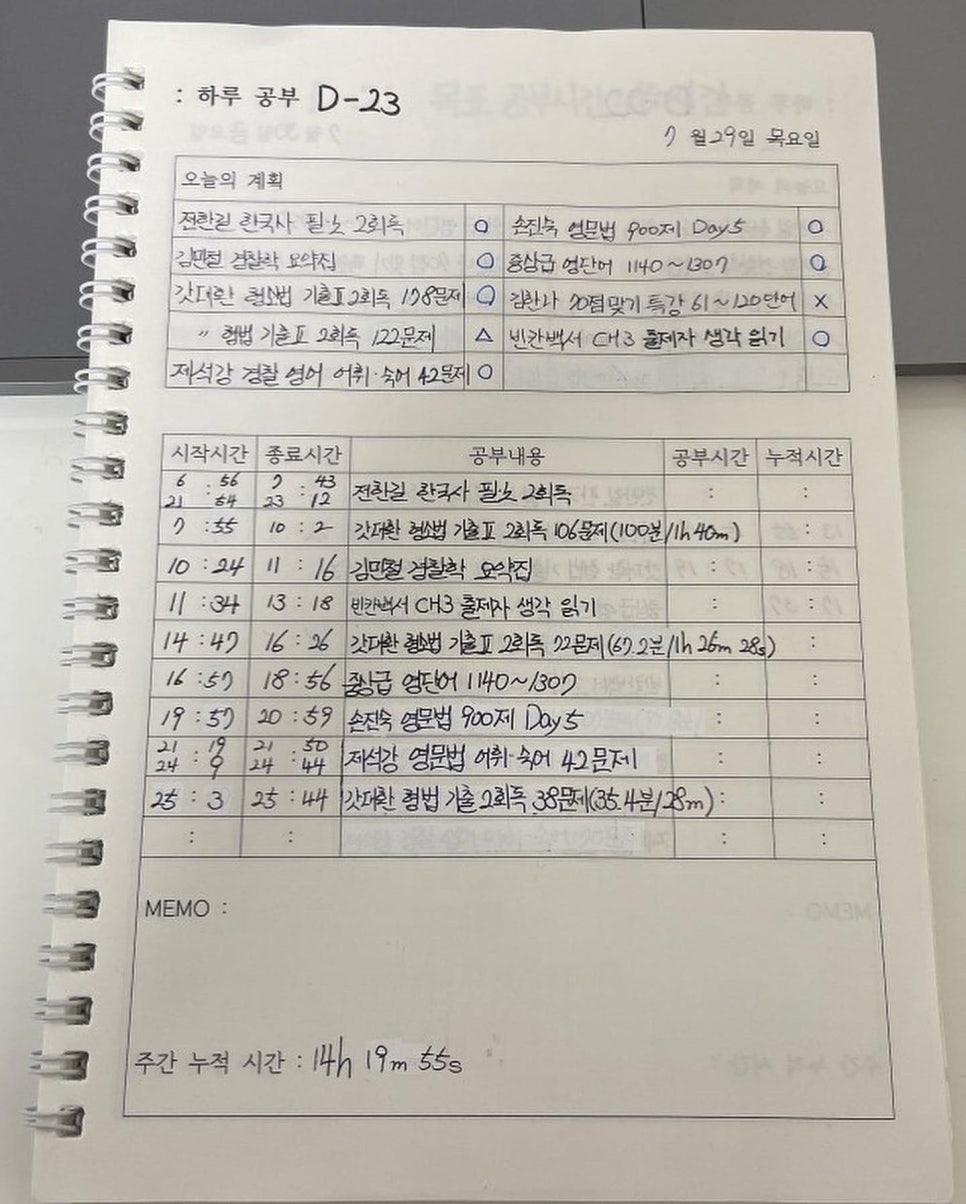 : 하루 공부 D-23
7 월 29일 목요일
오늘의 계획
전한길 한국사 필·노 2회독 O 손진숙 영문법 900제 Day5 O
김민철 경찰학 요약집 O 중상급 영단어 1140~1307 O
갓대환 형소법 기출Ⅱ 2회독 178문제 O 김한나 70점맞기 특강 61~120단어 X
〃 형법 기출Ⅱ 2회독 122문제 △ 빈칸백서 CH3 출제자 생각 읽기 O
제석강 경찰 영어 어휘·숙어 42문제 O
시작시간 종료시간 공부내용 공부시간 누적시간
6 : 56 7 : 43 전한길 한국사 필·노 2회독 : :
21 54 23 12
7 : 55 10 : 2 갓대환 형소법 기출Ⅱ 2회독 106문제(100분/1h 40m) :
10 : 24 11 : 16 김민철 경찰학 요약집 : :
11 : 34 13 : 18 빈칸백서 CH3 출제자 생각 읽기 : :
14 : 47 16 : 26 갓대환 형소법 기출Ⅱ 2회독 72문제(67.2분/1h 26m 28s) :
16 : 57 18 : 56 중상급 영단어 1140~1307 : :
19 : 57 20 : 59 손진숙 영문법 900제 Day5 : :
21 : 19 21 : 50 제석강 영문법 어휘·숙어 42문제 : :
24 : 9 24 : 44
25 : 3 25 : 44 갓대환 형법 기출 2회독 38문제(35.4분/28m) : :
: : : :
MEMO :
주간 누적 시간 : 14h 19m 55s